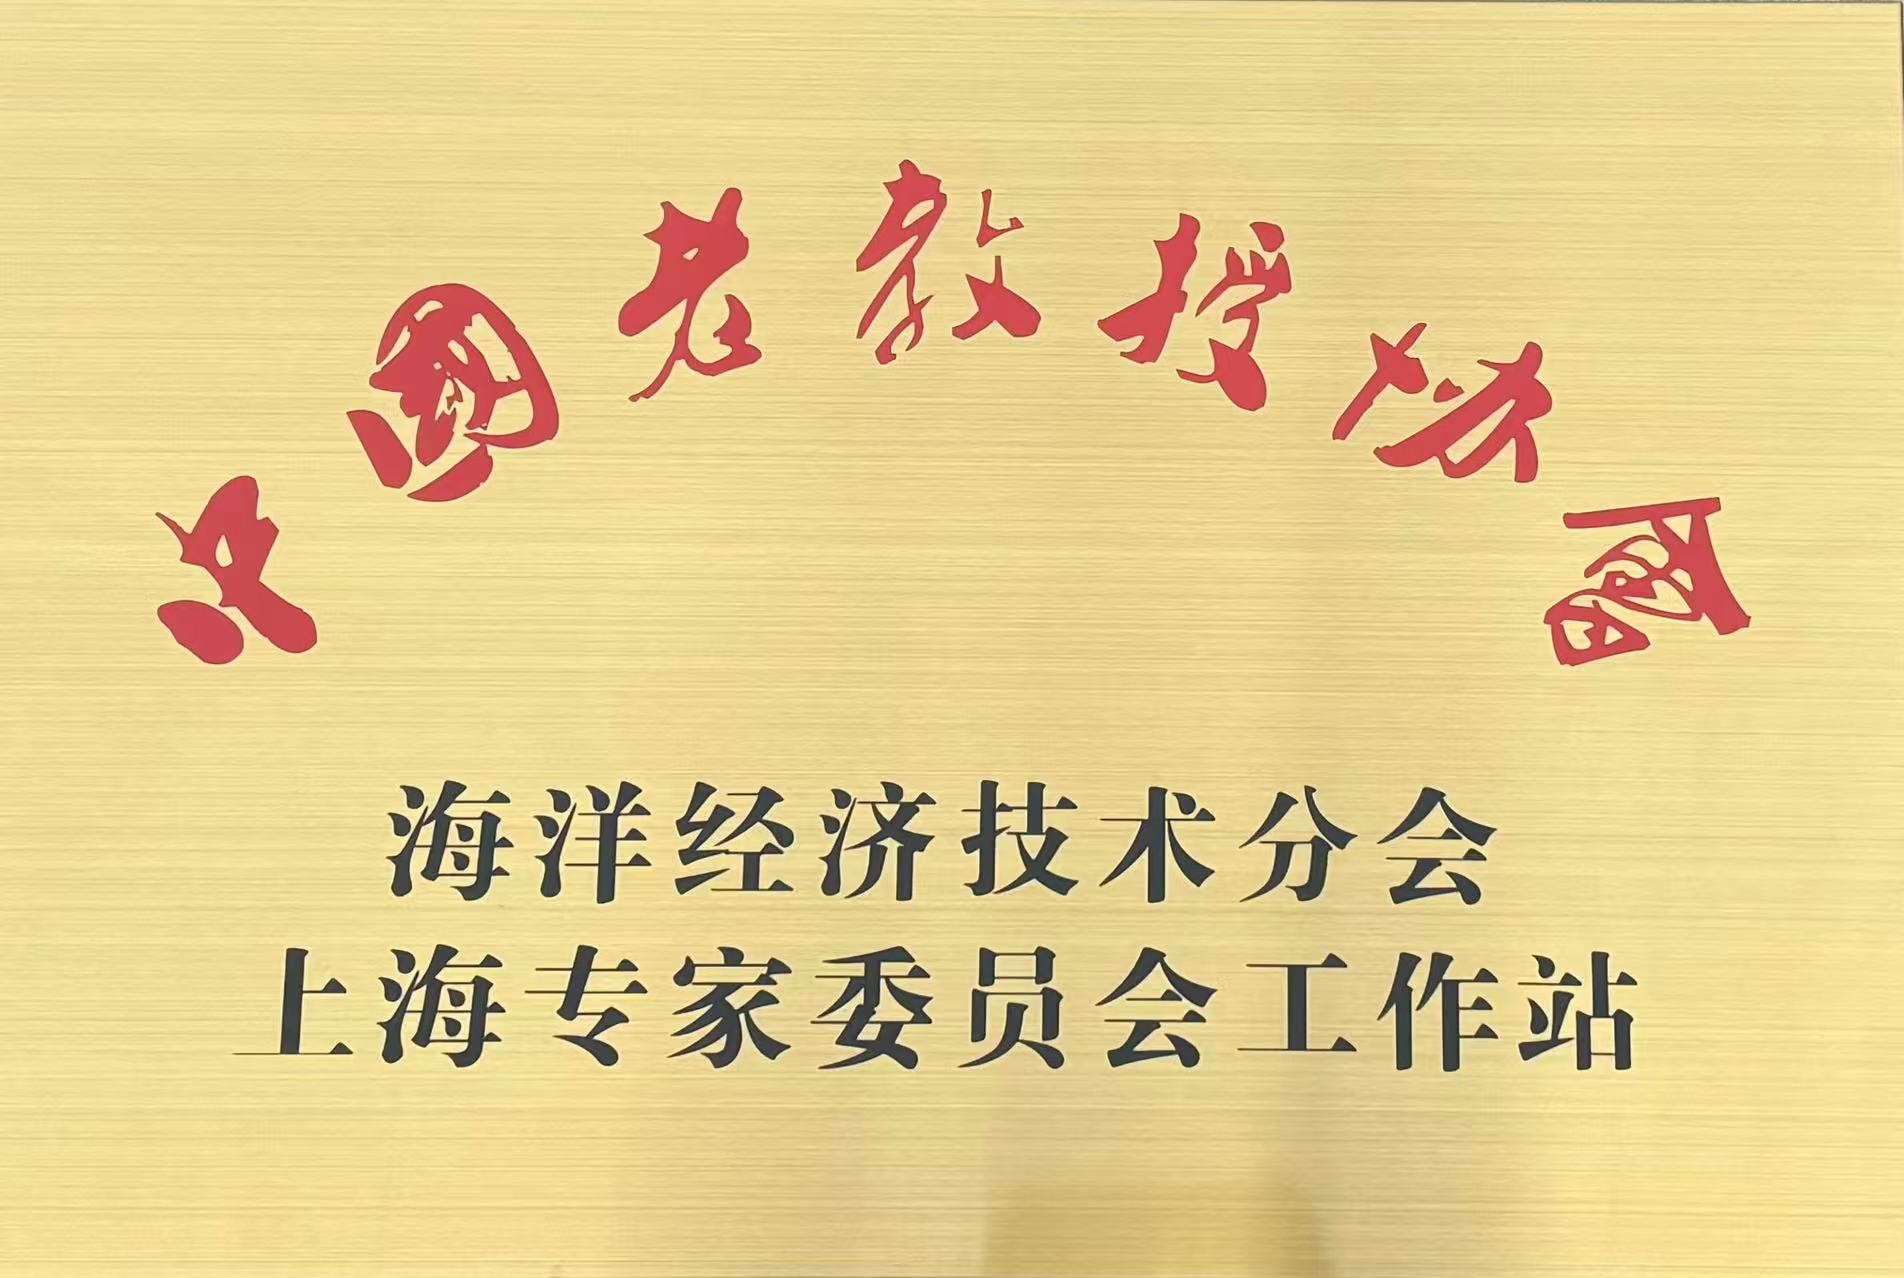 中國老教授协會
海洋经济技术分会
上海专家委员会工作站